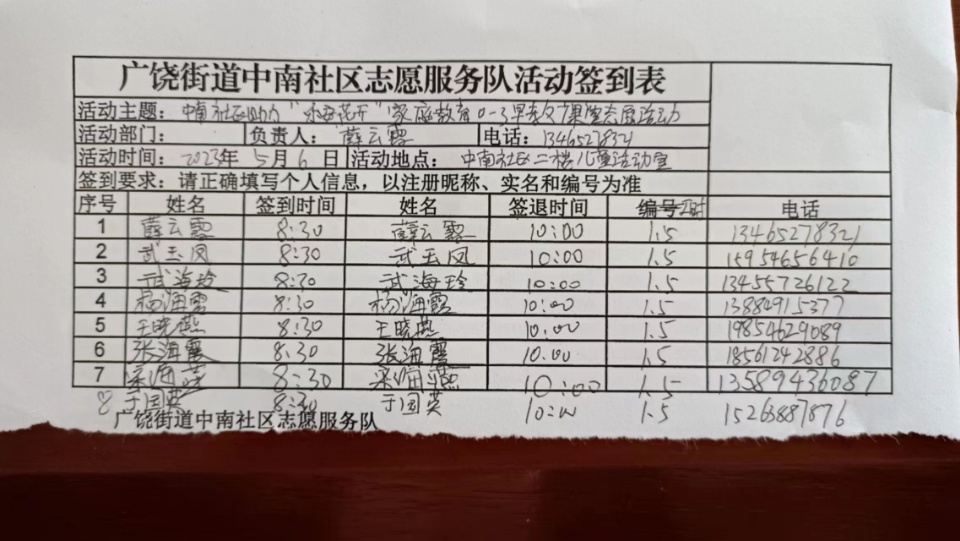 广饶街道中南社区志愿服务队活动签到表
活动主题： 中南社区助力 家庭教育0-3早教 活动
活动部门： 负责人：薛云霞 电话：13465278321
活动时间：2023年5月6日 活动地点：中南社区二楼儿童活动室
签到要求：请正确填写个人信息，以注册昵称、实名和编号为准
序号 姓名 签到时间 姓名 签退时间 编号 电话
1 薛云霞 8:30 薛云霞 10:00 1.5 13465278321
2 武玉凤 8:30 武玉凤 10:00 1.5 15954656410
3 武海玲 8:30 武海玲 10:00 1.5 13455726122
4 杨海霞 8:30 杨海霞 10:00 1.5 13884915377
5 王晓燕 8:30 王晓燕 10:00 1.5 19854629089
6 张海霞 8.30 张海霞 10.00 1.5 18561242886
7 8:30 10:00 1.5 13589436087
8 于国英 8:30 于国英 10:00 1.5 15263887876
广饶街道中南社区志愿服务队